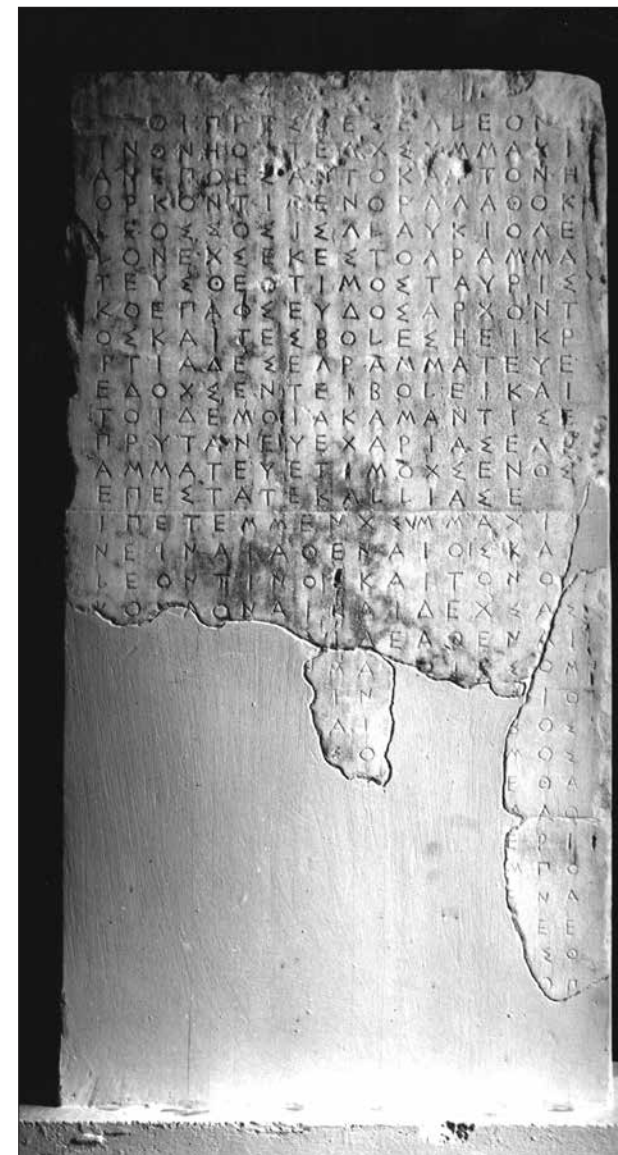 ΘΙΠΡΕΣΒΕΣΕΛLΕΟΝ
ΤΙΝΟΝΗΟΙΤΕΜΧΣΥΜΜΑΧΙ
ΑΝΕΠΟΕΣΑΝΤΟΚΑΙΤΟΝΗ
ΟΡΚΟΝΤΙΜΕΝΟΡΛΑΘΟΚ
LΕΟΣΣΟΣΙΣΛLΑΥΚΙΟΛΕ
LΟΝΕΧΣΕΚΕΣΤΟΛΡΑΜΜΑ
ΤΕΥΣΘΕΟΤΙΜΟΣΤΑΥΡΙΣ
ΚΟΕΠΑΦΣΕΥΔΟΣΑΡΧΟΝΤ
ΟΣΚΑΙΤΕΣΒΟLΕΣΗΕΙΚΡ
ΙΤΙΑΔΕΣΕΛΡΑΜΜΑΤΕΥΕ
ΕΔΟΧΣΕΝΤΕΙΒΟLΕΙΚΑΙ
ΤΟΙΔΕΜΟΙΑΚΑΜΑΝΤΙΣΕ
ΠΡΥΤΑΝΕΥΕΧΑΡΙΑΣΕΛΡ
ΑΜΜΑΤΕΥΕΤΙΜΟΧΣΕΝΟΣ
ΕΠΕΣΤΑΤΕΚΑLLΙΑΣΕ
ΙΠΕΤΕΜΜΕΝΧΣΥΜΜΑΧΙΑ
ΝΕΙΝΑΙΑΘΕΝΑΙΟΙΣΚΑΙ
LΕΟΝΤΙΝΟΙΣΚΑΙΤΟΝΟ
ΚΟΝΔΟΝΑΙΚΑΙΔΕΧΣΑΣ